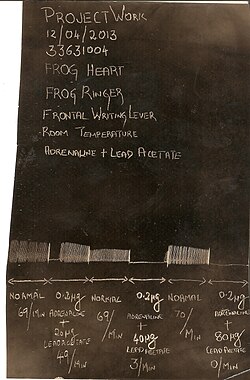 PROJECT WORK
12/04/2013
33631004
FROG HEART
FROG RINGER
FRONTAL WRITING LEVER
ROOM TEMPERATURE
ADRENALINE + LEAD ACETATE
NORMAL
69/MIN
0.2μg
ADRENALINE
+
20μg
LEAD ACETATE
49/MIN
NORMAL
69/MIN
0.2μg
ADRENALINE
+
40μg
LEAD ACETATE
3/MIN
NORMAL
70/MIN
0.2μg
ADRENALINE
+
80μg
LEAD ACETATE
0/MIN